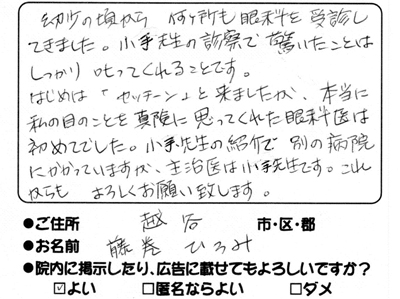 幼少の頃から 何ヶ所も眼科を受診し
てきました。小手先生の診察で驚いたことは
しっかり叱ってくれることです。
はじめは「カッチーン」と来ましたが、本当に
私の目のことを真険に思ってくれた眼科医は
初めてでした。小手先生の紹介で 別の病院
にかかっていますが、主治医は小手先生です。これ
からも よろしくお願い致します。
●ご住所 越谷 市・区・郡
●お名前 藤巻 ひろみ
●院内に掲示したり、広告に載せてもよろしいですか?
☑よい □匿名ならよい □ダメ